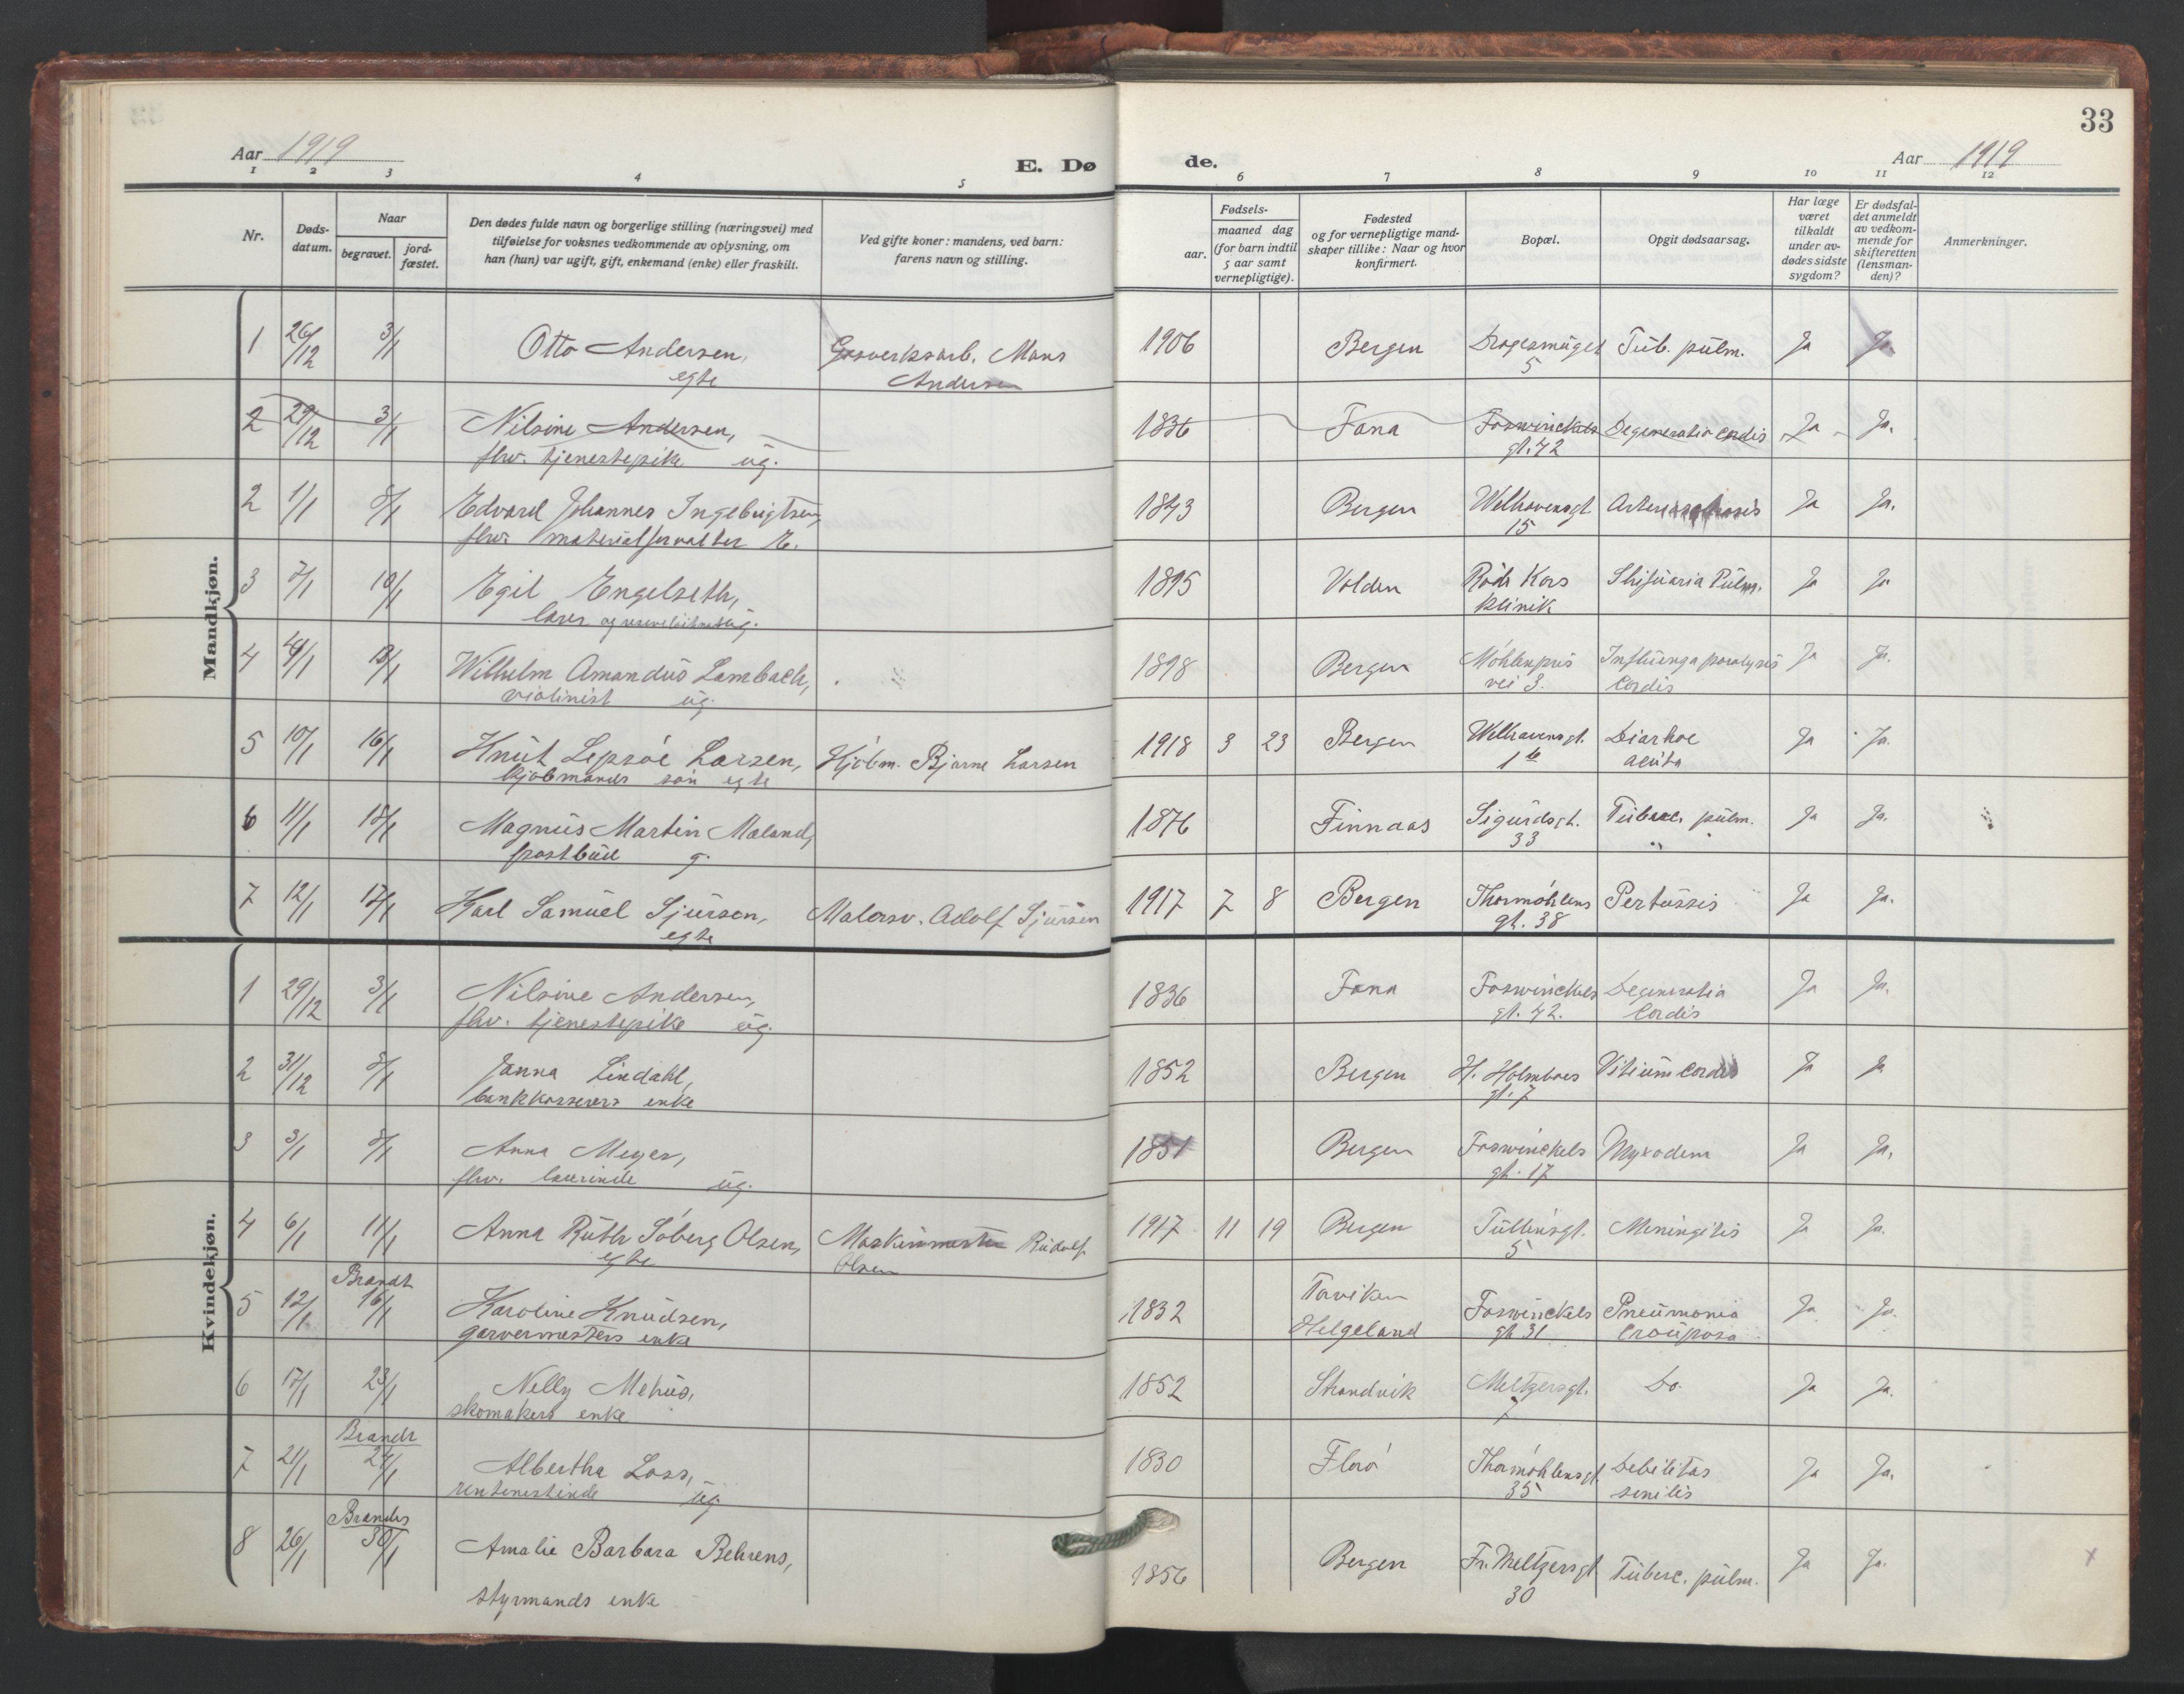 33
Aar 1919
E. Dø de.
Aar 1919
1 2 3 4 5 6 7 8 9 10 11 12
Nr.
Døds-datum.
Naar
begravet.
jord-fæstet.
Den dødes fulde navn og borgerlige stilling (næringsvei) med
tilføielse for voksnes vedkommende av oplysning, om
han (hun) var ugift, gift, enkemand (enke) eller fraskilt.
Ved gifte koner: mandens, ved barn:
farens navn og stilling.
Fødsels-
aar.
maaned dag
(for barn indtil
5 aar samt
vernepligtige).
Fødested
og for vernepligtige mand-
skaper tillike: Naar og hvor
konfirmert.
Bopæl.
Opgit dødsaarsag.
Har læge
været
tilkaldt
under av-
dødes sidste
sygdom?
Er dødsfal-
det anmeldt
av vedkom-
mende for
skifteretten
(lensman-
den)?
Anmerkninger.
Mandkjøn.
1 26/12 3/1 Otto Andersen, Gasverksarb. Mans 1906 Bergen Dragesmuget Tub. pulm. Ja Ja
egte Andersen 5
2 29/12 3/1 Nilsine Andersen, 1836 Fana Foswinckels Degeneratio cordis Ja Ja.
fhv. tjenestepike ug. gt. 42
2 1/1 8/1 Edvard Johannes Ingebrigtsen, 1843 Bergen Welhavensgt. Ja Ja.
fhv. materialforvalter E. 15
3 7/1 10/1 Egil Engelseth, 1895 Volden Røde Kors Pulm. Ja Ja
lærer og ug. klinik
4 9/1 13/1 Wilhelm Amandus Lambach, 1898 Bergen Møhlenpris Influenza paralysis Ja Ja.
violinist ug. vei 3. Cordis
5 10/1 16/1 Knut Lepsøe Larsen, Kjøbm. Bjarne Larsen 1918 3 23 Bergen Welhavensgt. Diarhoe Ja Ja.
kjøbmands søn egte 1 b acuta
6 11/1 15/1 Magnus Martin Mæland, 1876 Finnaas Sigurdsgt. Tuberc. pulm. Ja Ja.
postbud g. 33
7 12/1 17/1 Karl Samuel Sjursen, Malersv. Adolf Sjursen 1917 7 8 Bergen Thormøhlens Pertussis Ja Ja.
egte gt. 38
Kvindekjøn.
1 29/12 3/1 Nilsine Andersen, 1836 Fana Foswinckels Degeneratio Ja Ja.
fhv. tjenestepike ug. gt. 42. Cordis
2 31/12 8/1 Janna Lindahl, 1852 Bergen H. Holmboes Vitium Cordis Ja Ja
bankkasserers enke gt. 7
3 3/1 8/1 Anna Meyer, 1851 Bergen Foswinckels Myxodem Ja Ja.
fhv. lærerinde ug. gt. 17
4 6/1 11/1 Anna Ruth Søberg Olsen, Maskinmester Rudolf 1917 11 19 Bergen Tullinsgt. Meningitis Ja Ja.
egte Olsen 5
Brændt
5 12/1 16/1 Karoline Knudsen, 1832 Tøviken Foswinckels Pneumonia Ja Ja.
garvermesters enke Helgeland gt 31 Crouposa
6 17/1 23/1 Nelly Mehus, 1852 Strandvik Meltzersgt. Do. Ja Ja.
skomakers enke 7
Brændt
7 21/1 24/1 Albertha Loss, 1830 Florø Thormøhlensgt. Debilitas Ja Ja.
rentenistinde ug. 35 senilis
Brændes
8 26/1 30/1 Amalie Barbara Behrens, 1856 Bergen Fr. Meltzersgt. Tuberc. pulm. Ja Ja. x
styrmands enke 30